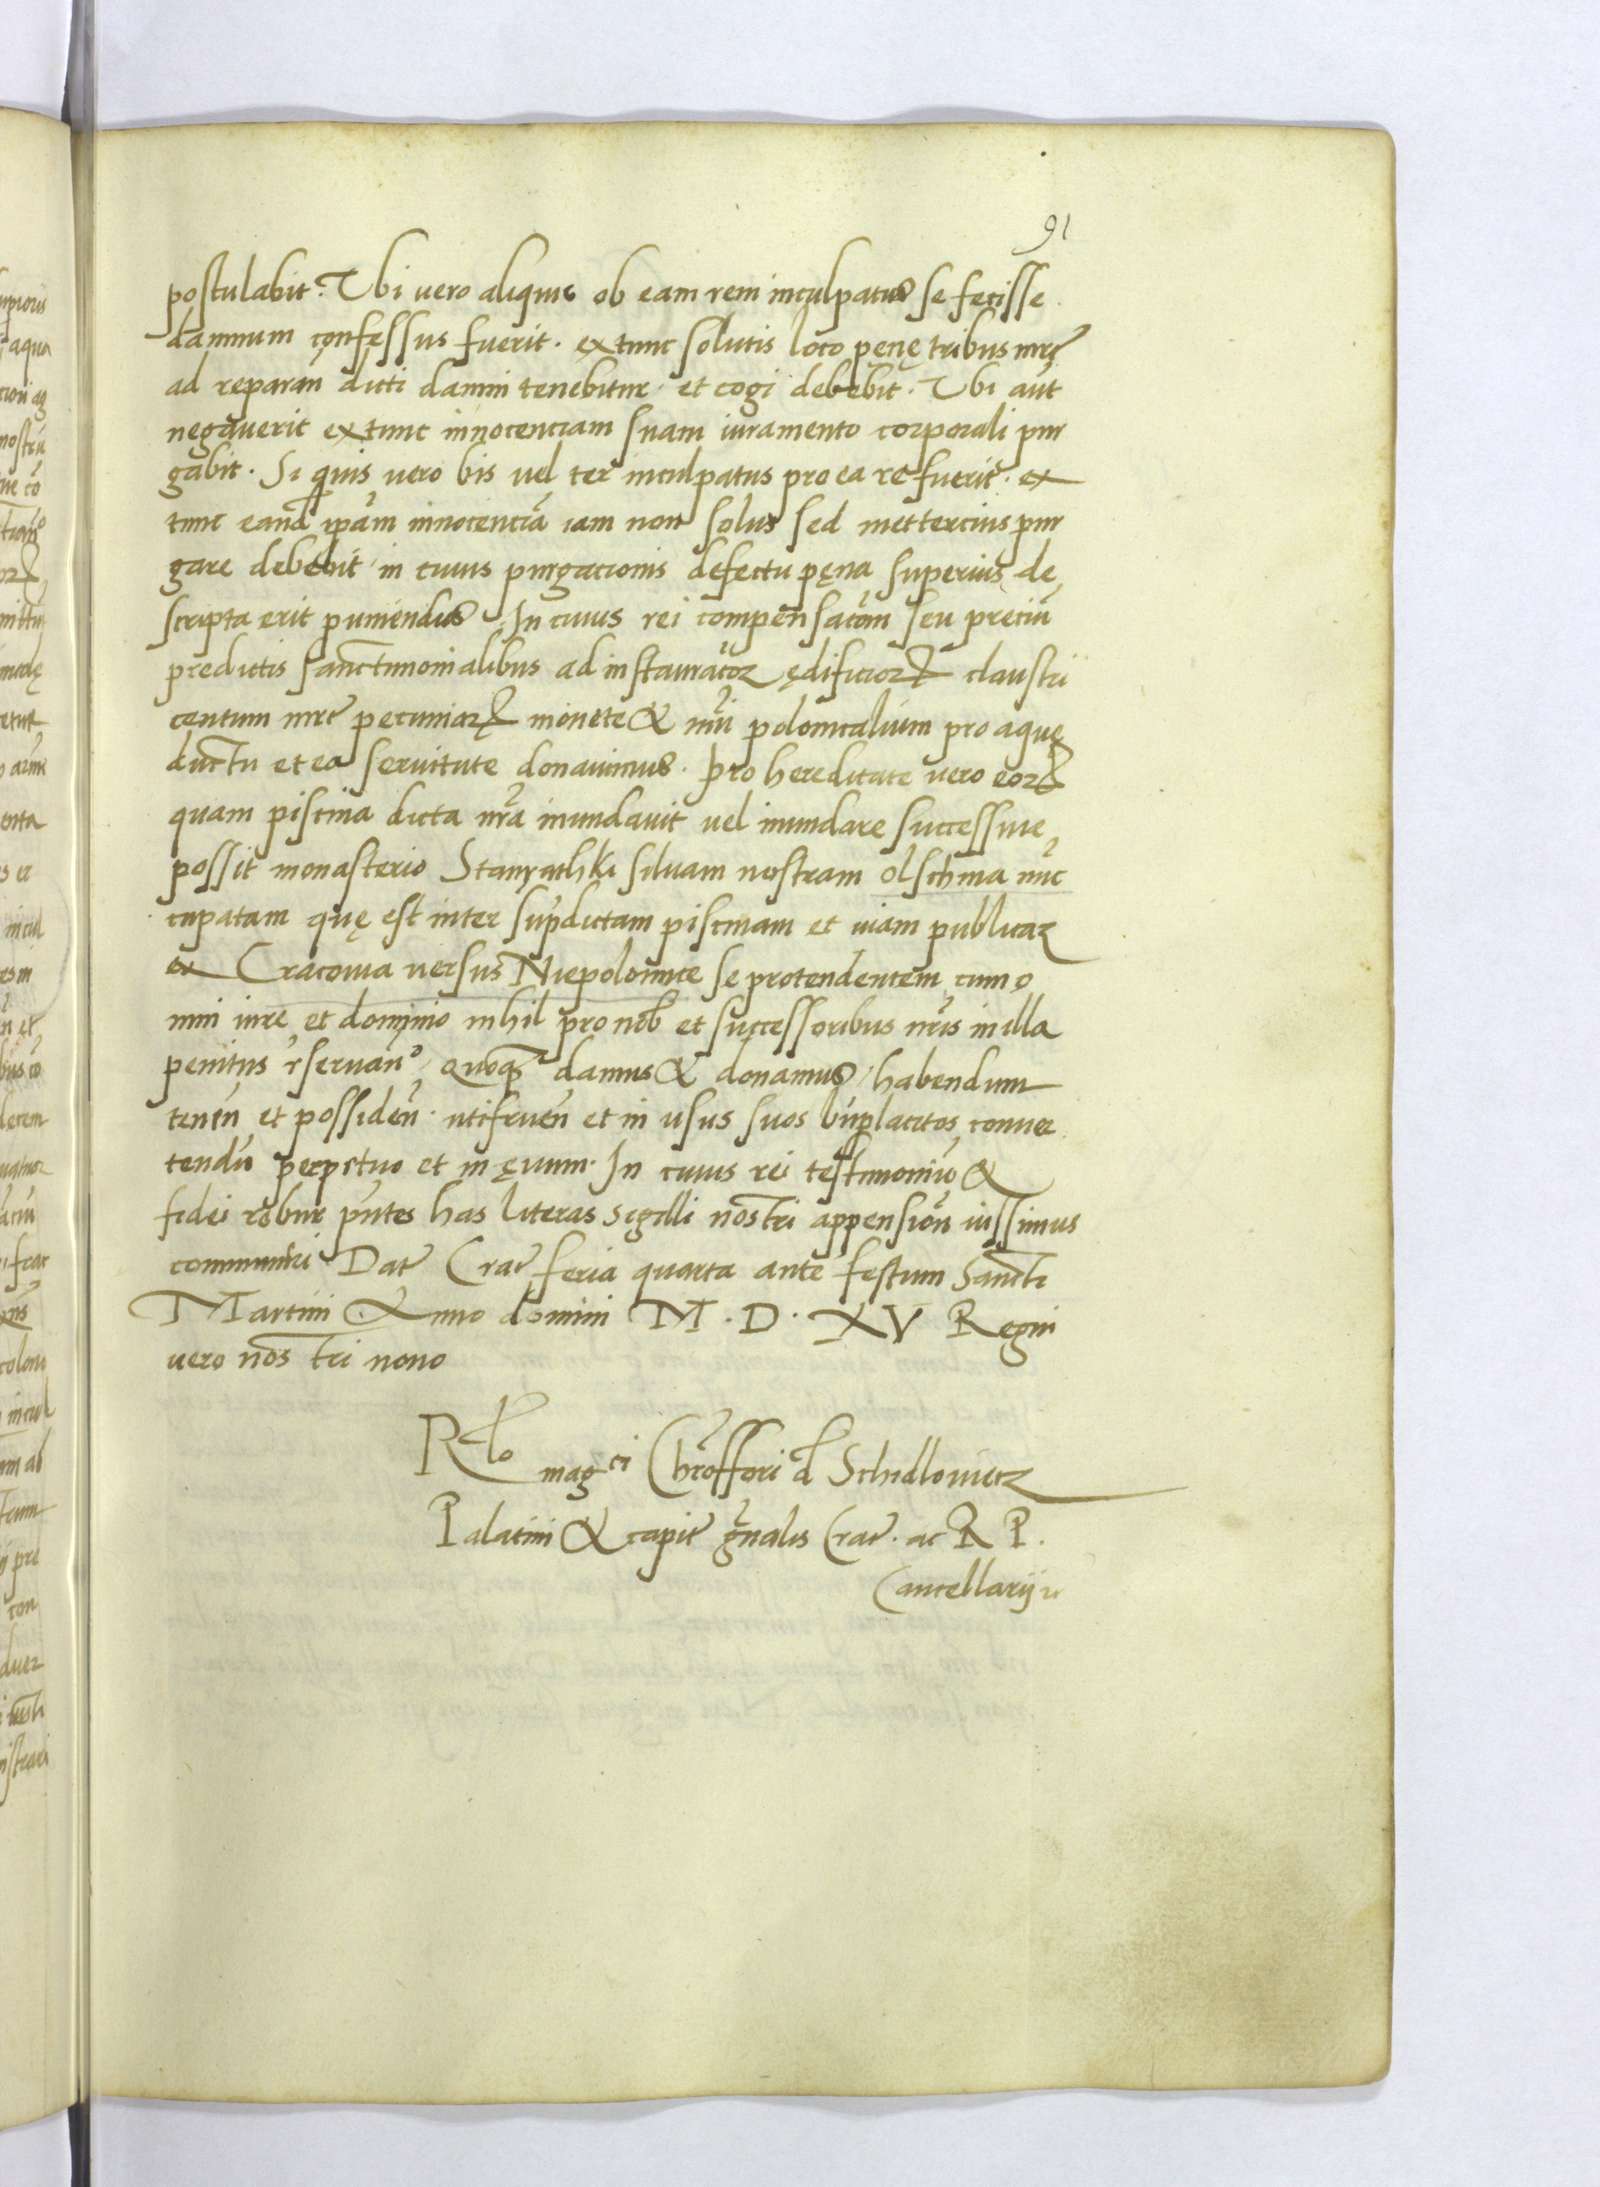 91
postulabit. Ubi vero aliquis ob eam rem inculpatus se fecisse
damnum confessus fuerit. extunc solutis loco penę tribus mrc̃
ad reparan̄ dicti damni tenebitur et cogi debebit. Ubi aut̄
negaverit extunc innocenciam suam iuramento corporali pur
gabit. Si quis vero bis vel ter inculpatus pro ea re fuerit. ex
tunc eand̄ ip̄am innocenciā iam non solus sed mettercius pur
gare debebit in cuius purgacionis defectu pęna superius de
scripta erit puniendus In cuius rei compensac̄om seu preciū
predictis sanctimonialibus ad instaurac̄oꝫ ędificioꝝ claustri
centum mrc̃ pecuniaꝝ monete & nūi polonicalium pro aquę
ductu et ea servitute donavimus. Pro hereditate vero eoꝝ
quam piscina dicta nr̄a inundavit vel inundare successive
possit monasterio Stanyathki silvam nostram olschina nūc
cupatam quę est inter sup̄dictam piscinam et viam publicaꝫ
ex Cracovia versus Niepolomice se protendentem cum o
mni iure et dominio nihil pro nob̄ et successoribus nr̄is in illa
penitus r̄servan̄º quoqꝫ damus & donamus habendum
tenēn et possiden̄. utifruen̄ et in usus suos b̄nplacitos conver
tendū perpetuo et in ęvum. In cuius rei testimoniū &
fidei robur p̄ntes has literas sigilli nostri appensiōn iussimus
communiri Dat̃ Crac̃ feria quarta ante festum Sancti
Martini Anno domini M. D. XV Regni
vero nostri nono
Rl̄o mag^ci Chr̄offori d̄ Schidloviecz
Palatini & capit̃ gn̄alis Crac̃. ac R P.
Cancellarij